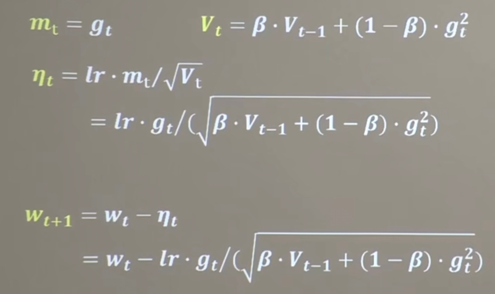 mₜ = gₜ  Vₜ = β · Vₜ₋₁ + (1 − β) · gₜ²
ηₜ = lr · mₜ/√Vₜ
= lr · gₜ/(√β · Vₜ₋₁ + (1 − β) · gₜ²)
wₜ₊₁ = wₜ − ηₜ
= wₜ − lr · gₜ/(√β · Vₜ₋₁ + (1 − β) · gₜ²)